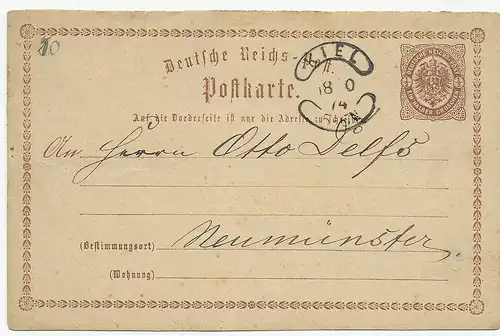 10
Deutsche Reichs-
KIEL
18 10
74
Postkarte.
Auf die Vorderseite ist nur die Adresse zu
An Herrn Otto Delfs
(Bestimmungsort) Neumünster
(Wohnung)